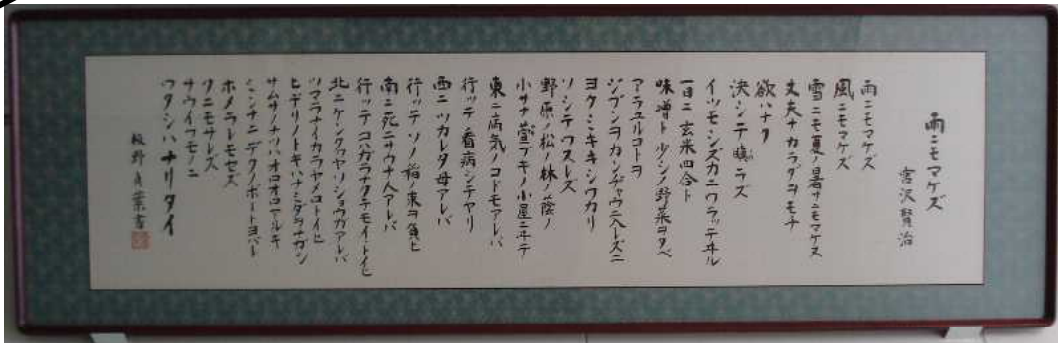 雨ニモマケズ
宮沢賢治
雨ニモマケズ
風ニモマケズ
雪ニモ夏ノ暑サニモマケヌ
丈夫ナカラダヲモチ
欲ハナク
決シテ瞋ラズ
イツモシズカニワラッテヰル
一日ニ玄米四合ト
味噌ト少シノ野菜ヲタベ
アラユルコトヲ
ジブンヲカンジャウニ入レズニ
ヨクミキキシワカリ
ソシテワスレズ
野原ノ松ノ林ノ蔭ノ
小サナ萱ブキノ小屋ニヰテ
東ニ病気ノコドモアレバ
行ッテ看病シテヤリ
西ニツカレタ母アレバ
行ッテソノ稲ノ束ヲ負ヒ
南ニ死ニサウナ人アレバ
行ッテコハガラナクテモイヽトイヒ
北ニケンクヮヤソショウガアレバ
ツマラナイカラヤメロトイヒ
ヒデリノトキハナミダヲナガシ
サムサノナツハオロオロアルキ
ミンナニデクノボートヨバレ
ホメラレモセズ
クニモサレズ
サウイフモノニ
ワタシハナリタイ